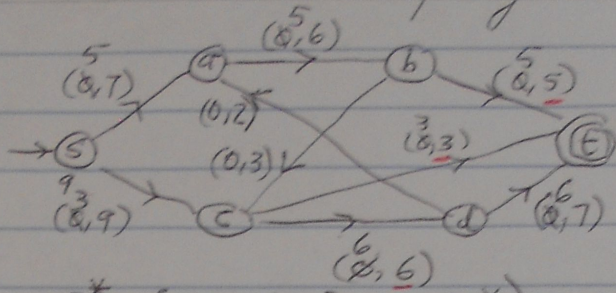 5
(0,6)
5
(0,7)
a
b
5
(0,5)
(0,2)
3
(0,3)
(0,3)
S
t
9
3
(0,9)
c
d
6
(0,7)
6
(0,6)